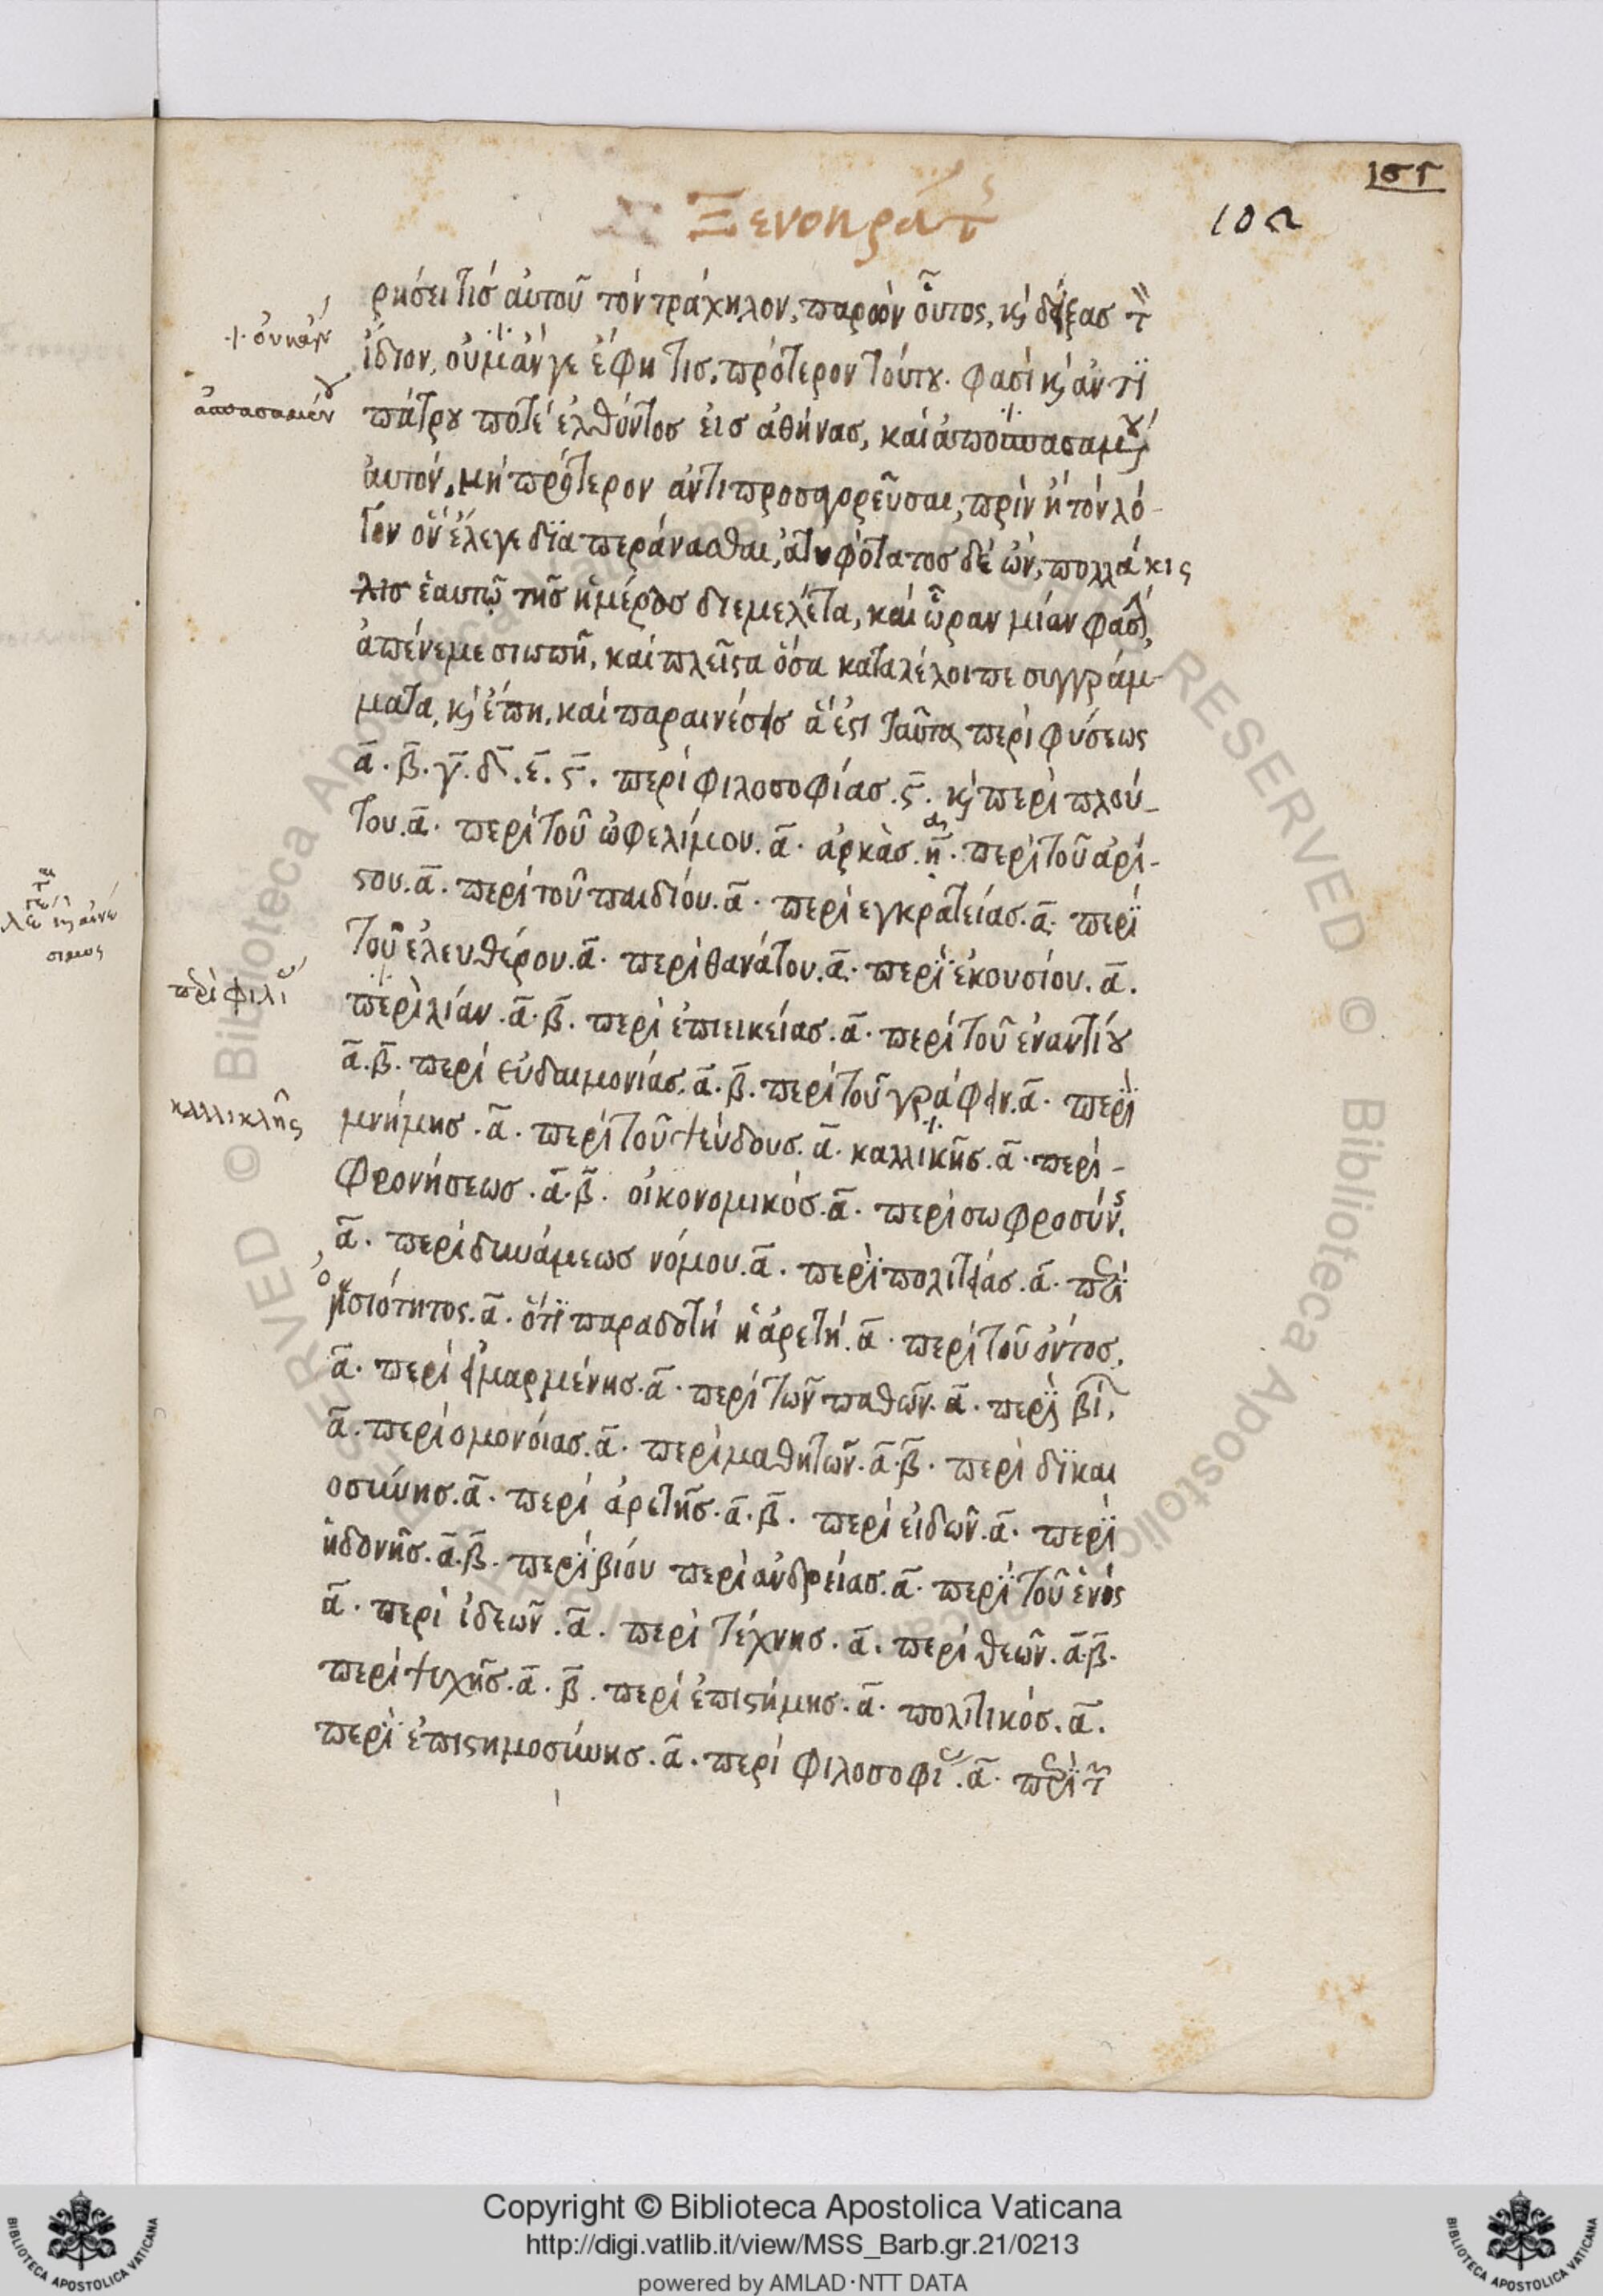 Ξενοκράτ
102
ρήσει τίσ αὐτοῦ τόν τράχηλον, παρών οὗτος, κ δείξας τ
ἴδιον, οὐμὰνγε ἔφη τις, πρότερον τούτου. φασί κ ἀντϊ
πάτρου ποτέ ἐλθόντος ἐις ἀθήνας, καί
ἀυτόν, μή πρότερον ἀντιπροσαγορεῦσαι, πρίν ἤ τόν λό-
γον ὅν ἔλεγε δϊαπεράνασθαι, ἀτυφότατος δέ ὤν, πολλάκις
λις ἑαυτῷ τῆς ἡμέρας διεμελέτα, καί ὥραν μίαν φασί,
ἀπένεμε σιωπῇ, καί πλεῖστα ὅσα καταλέλοιπε συγγράμ-
ματα, κ ἔπη, καί παραινέσεις ἅ ἐστι ταῦτα, περί φύσεως
ᾱ. β̄. γ̄. δ̄. ε̄. ϛ̄. περί φιλοσοφίας. ϛ̄. κ περί πλού-
του. ᾱ. περί τοῦ ὠφελίμου. ᾱ. ἀρκὰς. ἤ. περί τοῦ ἀρί-
στου. ᾱ. περί τοῦ παιδίου. ᾱ. περί εγκρατείας. ᾱ. περϊ
τοῦ ἐλευθέρου. ᾱ. περί θανάτου. ᾱ. περϊ ἑκουσίου. ᾱ.
περὶλίαν. ᾱ. β̄. περί ἐπιεικείας. ᾱ. περί τοῦ ἐναντίου
ᾱ. β̄. περί εὐδαιμονίας. ᾱ. β̄. περί τοῦ γράφειν. ᾱ. περϊ
μνήμης. ᾱ. περί τοῦ ψεύδους. ᾱ. καλλικῆς. ᾱ. περί-
φρονήσεως. ᾱ. β̄. οἰκονομικός. ᾱ. περί σωφροσύν.
ᾱ. περί δυνάμεως νόμου. ᾱ. περϊ πολιτείας. ᾱ. πϊ
ὁσιότητος. ᾱ. ὅτϊ παραδοτή ἡ ἀρετή. ᾱ. περί τοῦ ὄντος.
ᾱ. περί εἱμαρμένης. ᾱ. περί τῶν παθῶν. ᾱ. περϊ βί.
ᾱ. περί ομονόιας. ᾱ. περί μαθητῶν. ᾱ. β̄. περί δϊκαι
οσύνης. ᾱ. περί ἀρετῆς. ᾱ. β̄. περί εἰδῶν. ᾱ. περϊ
ἡδονῆς. ᾱ. β̄. περϊ βίου περί ἀνδρείας. ᾱ. περϊ τοῦ ἑνός
ᾱ. περί ἰδεῶν. ᾱ. περί τέχνης. ᾱ. περί θεῶν. ᾱ. β̄.
περί ψυχῆς. ᾱ. β̄. περί ἐπιστήμης. ᾱ. πολιτικός. ᾱ.
περϊ ἐπιστημοσύνης. ᾱ. περί φιλοσοφι. ᾱ. πρϊ τ
καλλικλῆς
Copyright © Biblioteca Apostolica Vaticana
http://digi.vatlib.it/view/MSS_Barb.gr.21/0213
powered by AMLAD·NTT DATA
BIBLIOTECA APOSTOLICA VATICANA
BIBLIOTECA APOSTOLICA VATICANA